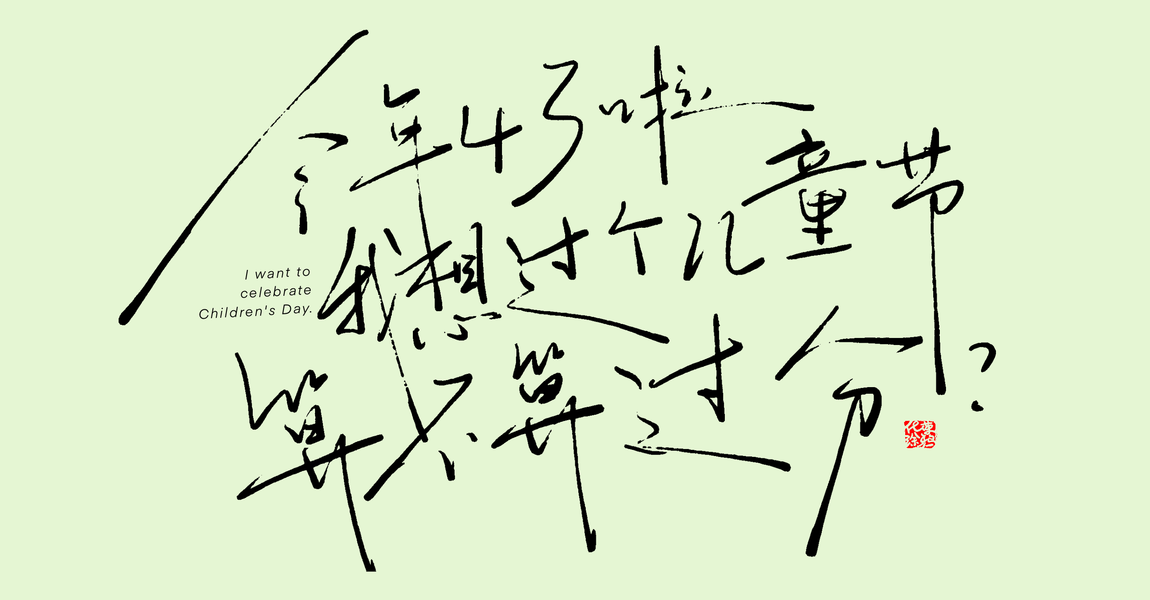 今年43啦
我想过个儿童节
算不算过分?
I want to
celebrate
Children's Day.